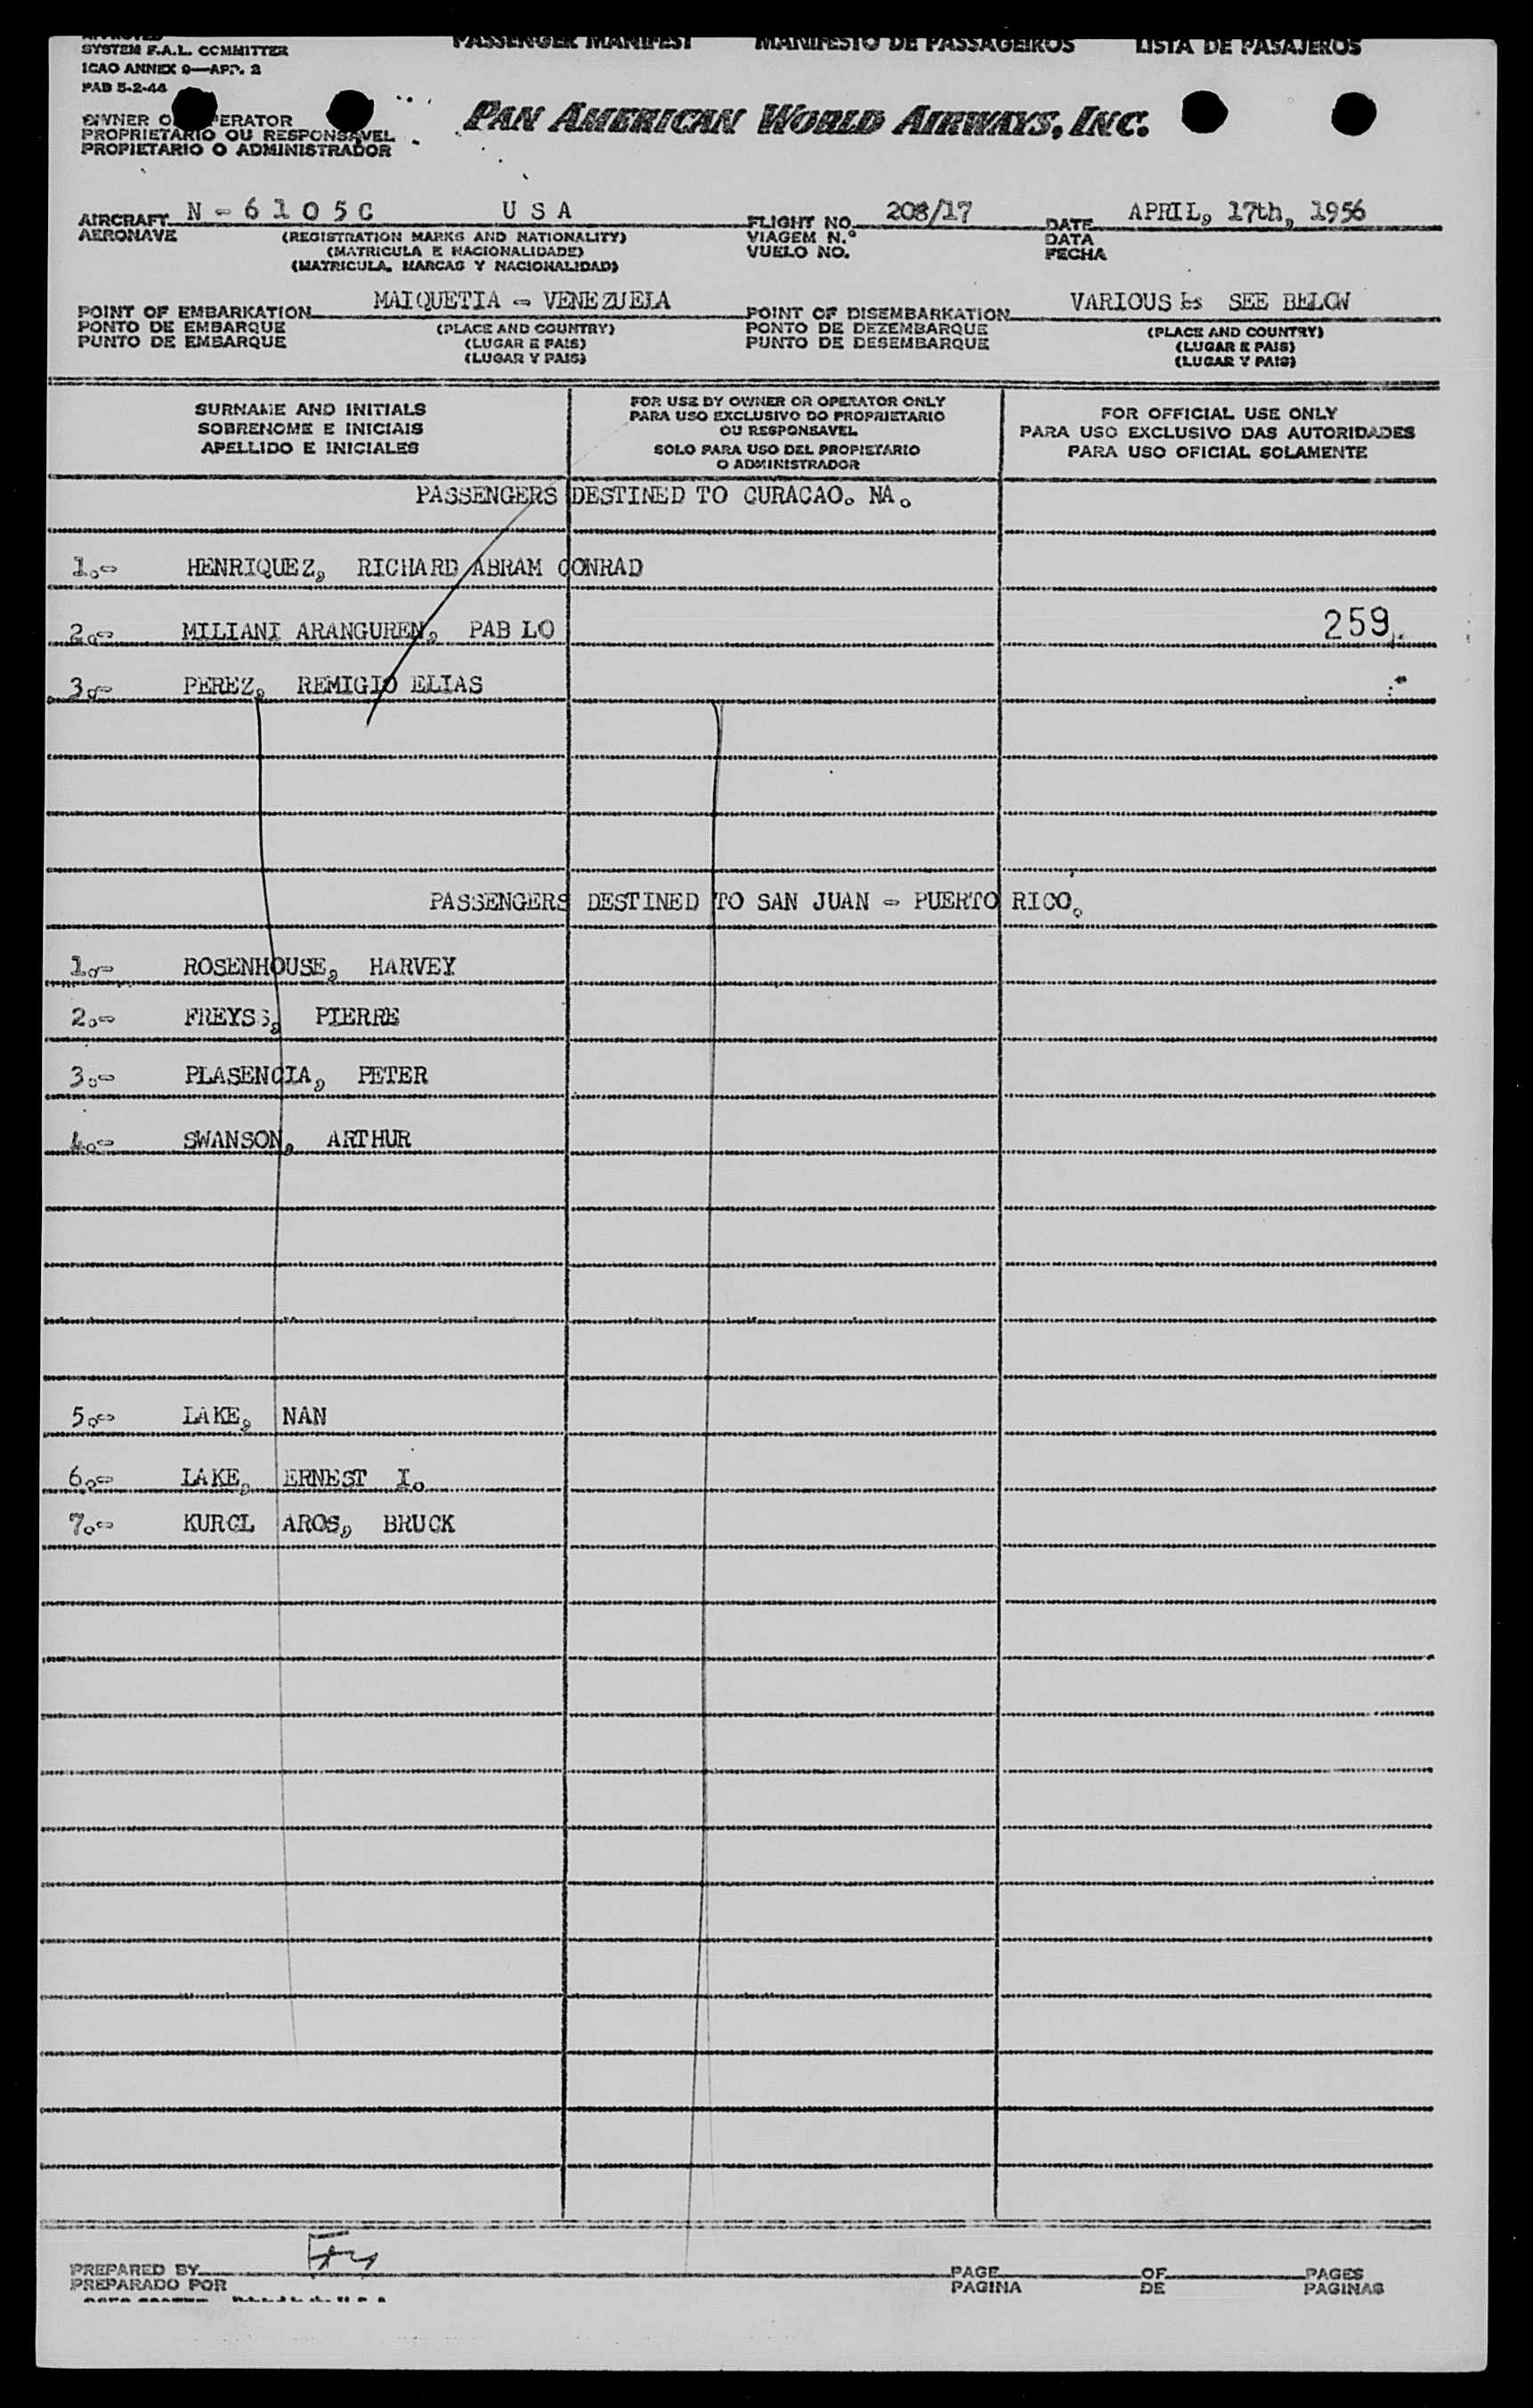 PASSENGER MANIFEST MANIFESTO DE PASSAGEIROS LISTA DE PASAJEROS
APPROVED
SYSTEM F.A.L. COMMITTER
ICAO ANNEX 9—APP. 2
PAB 5-2-44
PAN AMERICAN WORLD AIRWAYS, INC.
OWNER O PERATOR
PROPRIETARIO OU RESPONSAVEL
PROPIETARIO O ADMINISTRADOR
AIRCRAFT N - 6 1 0 5 C U S A FLIGHT NO. 208/17 DATE APRIL, 17th, 1956
AERONAVE (REGISTRATION MARKS AND NATIONALITY) VIAGEM N.° DATA
(MATRICULA E NACIONALIDADE) VUELO NO. FECHA
(MATRICULA, MARCAS Y NACIONALIDAD)
POINT OF EMBARKATION MAIQUETIA - VENEZUELA POINT OF DISEMBARKATION VARIOUS SEE BELOW
PONTO DE EMBARQUE (PLACE AND COUNTRY) PONTO DE DEZEMBARQUE (PLACE AND COUNTRY)
PUNTO DE EMBARQUE (LUGAR E PAIS) PUNTO DE DESEMBARQUE (LUGAR E PAIS)
(LUGAR Y PAIS) (LUGAR Y PAIS)
SURNAME AND INITIALS
SOBRENOME E INICIAIS
APELLIDO E INICIALES
FOR USE BY OWNER OR OPERATOR ONLY
PARA USO EXCLUSIVO DO PROPRIETARIO
OU RESPONSAVEL
SOLO PARA USO DEL PROPIETARIO
O ADMINISTRADOR
FOR OFFICIAL USE ONLY
PARA USO EXCLUSIVO DAS AUTORIDADES
PARA USO OFICIAL SOLAMENTE
PASSENGERS DESTINED TO CURACAO. NA.
1.- HENRIQUEZ, RICHARD ABRAM CONRAD
2.- MILIANI ARANGUREN, PAB LO 259
3.- PEREZ, REMIGIO ELIAS
PASSENGERS DESTINED TO SAN JUAN - PUERTO RICO.
1.- ROSENHOUSE, HARVEY
2.- FREYSS, PIERRE
3.- PLASENCIA, PETER
4.- SWANSON, ARTHUR
5.- LAKE, NAN
6.- LAKE, ERNEST I.
7.- KURCL AROS, BRUCK
PREPARED BY PAGE OF PAGES
PREPARADO POR PAGINA DE PAGINAS